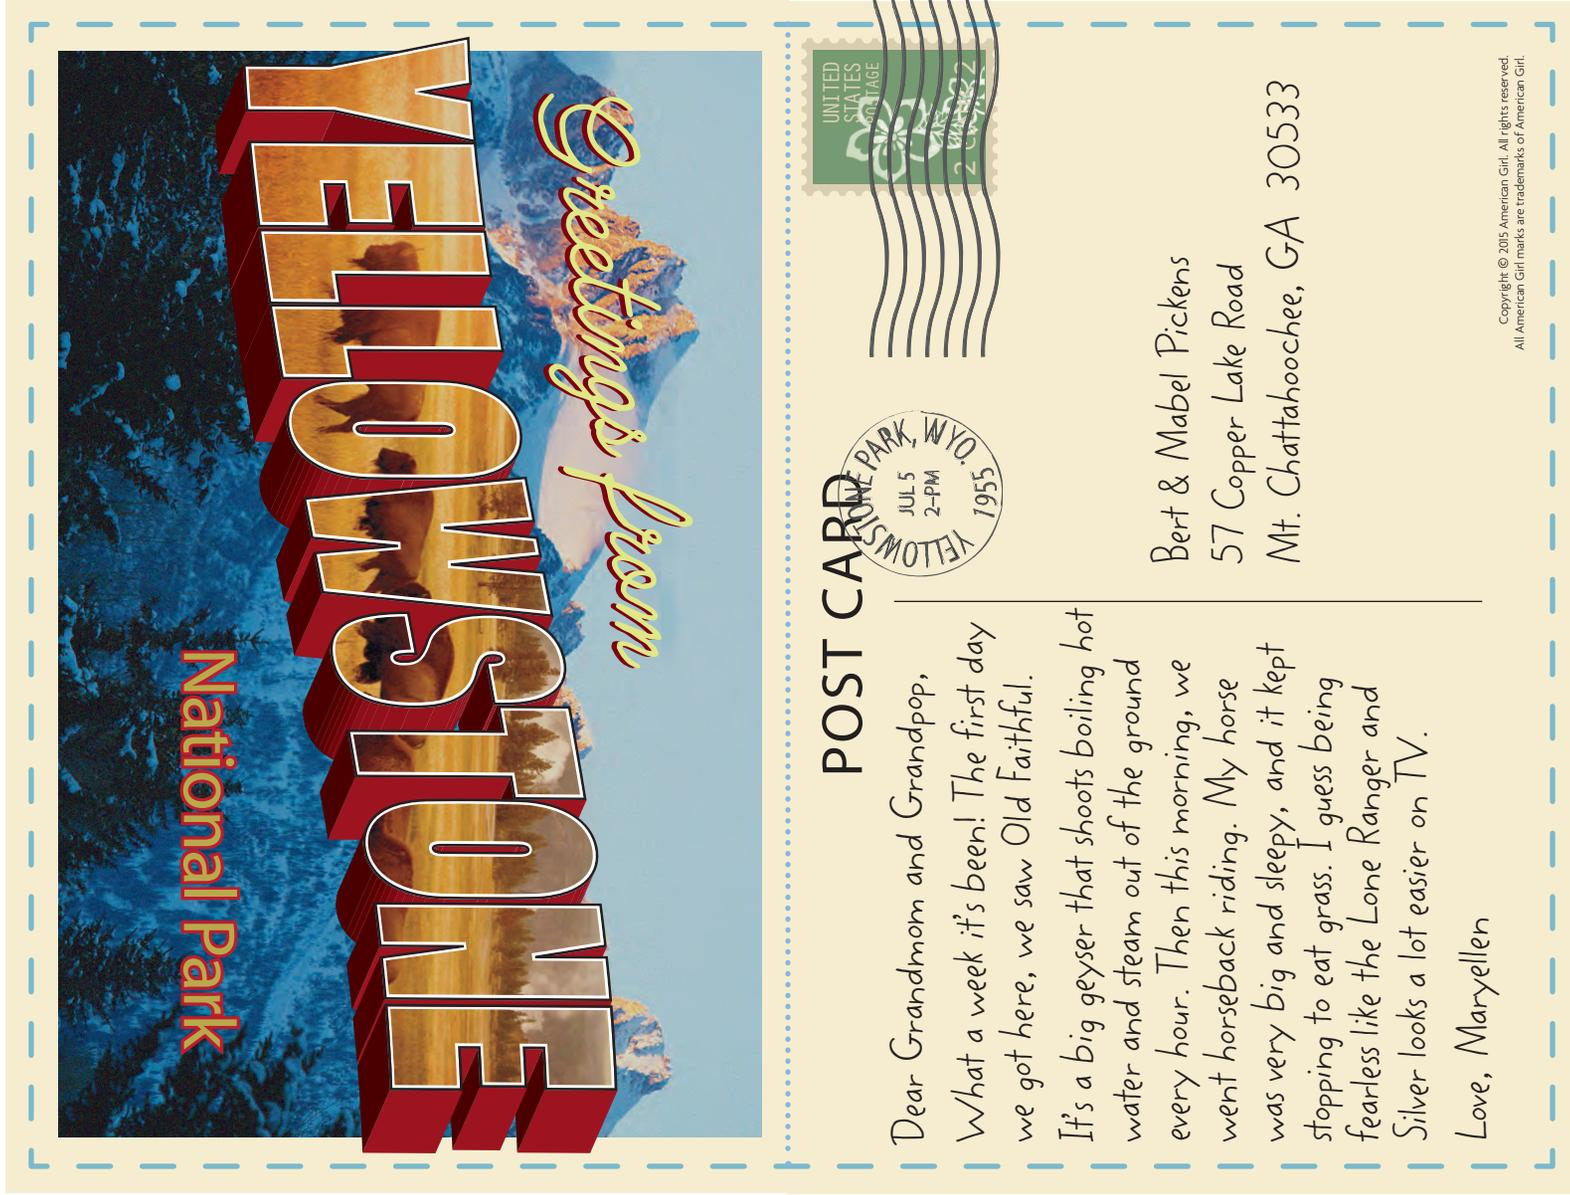 Greetings from
YELLOWSTONE
National Park
POST CARD
Dear Grandmom and Grandpop,
What a week it's been! The first day
we got here, we saw Old Faithful.
It's a big geyser that shoots boiling hot
water and steam out of the ground
every hour. Then this morning, we
went horseback riding. My horse
was very big and sleepy, and it kept
stopping to eat grass. I guess being
fearless like the Lone Ranger and
Silver looks a lot easier on TV.
Love, Maryellen
YELLOWSTONE PARK, WYO.
JUL 5
2-PM
1955
UNITED
STATES
POSTAGE
2 2
Bert & Mabel Pickens
57 Copper Lake Road
Mt. Chattahoochee, GA 30533
Copyright © 2015 American Girl. All rights reserved.
All American Girl marks are trademarks of American Girl.